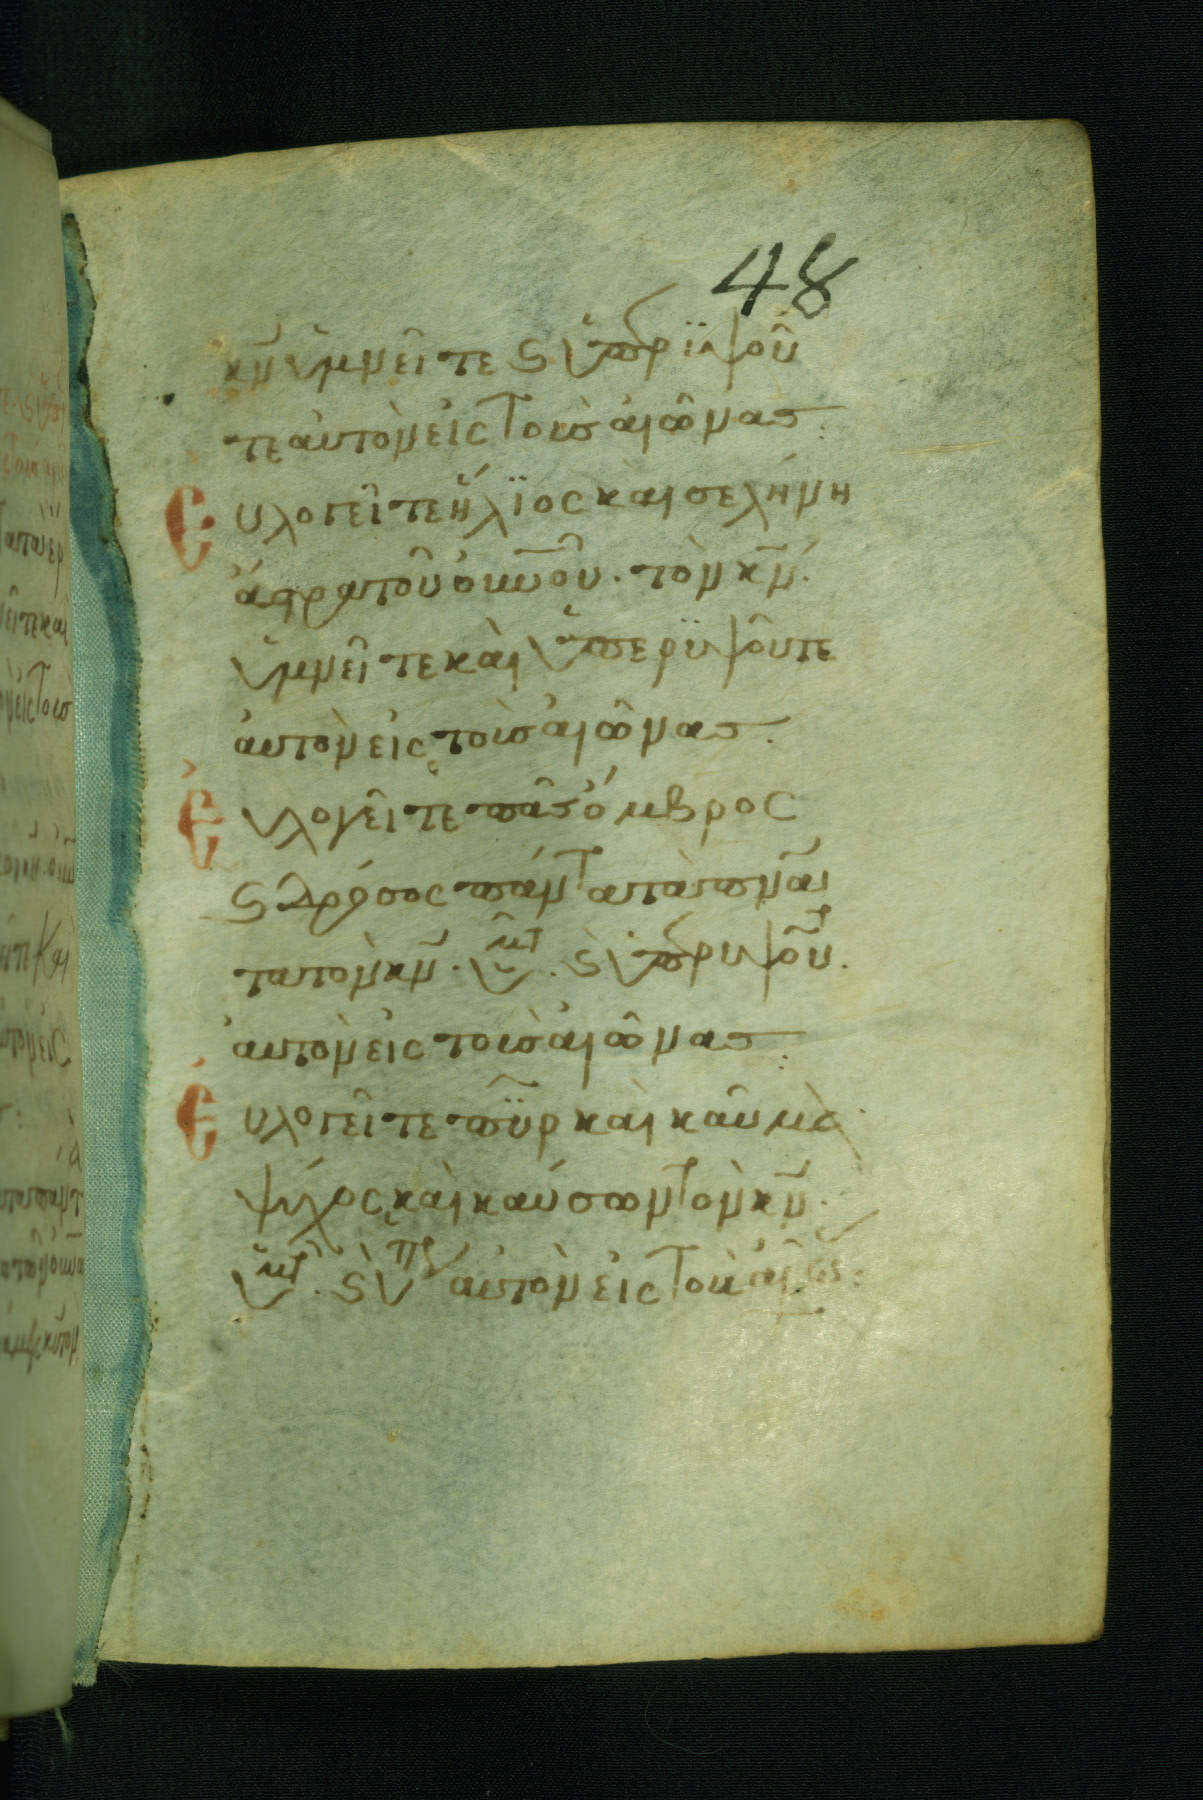 48
κ̅ν̅ ὑμνεῖτε ϛ ὑπερϊψοῦ
τε αυτὸν εἰς τοὺσ αἰῶνασ:
Ευλογεῖτε ἥλϊος καὶ σελήνη
ἄστρα τοῦ ουνοῦ· τὸν κ̅ν̅·
ὑμνεῖτε καὶ ὑπερϋψοῦτε
ἀυτὸν εἰς τοὺσ αἰῶνασ.
Ἐυλογεῖτε πᾶσ ὄμβρος
ϛ δρόσος πάντα τὰ πν̅α
τα τὸν κ̅ν̅· ὑμτ. ϛ ὑπερυψοῦτ.
ἀυτὸν εἰς τοὺσ αἰῶνασ:
Ἐυλογεῖτε πῦρ καὶ καῦμα·
ψύχος καὶ καύσων τὸν κ̅ν̅·
ὑμτ. ϛ ὑπ αυτὸν εἰς τοὺσ